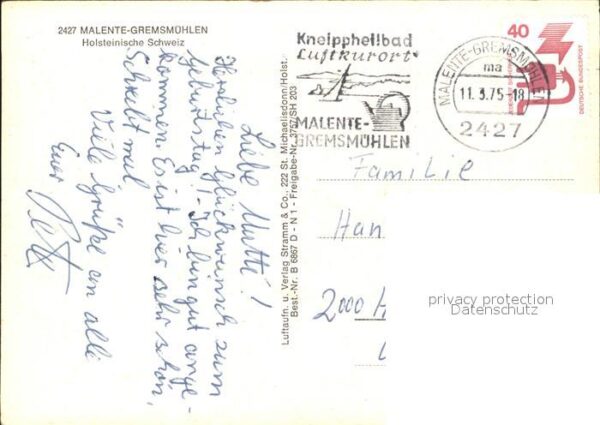 2427 MALENTE-GREMSMÜHLEN
Holsteinische Schweiz
Liebe Mutti!
Herzlichen Glückwunsch zum
Geburtstag! Ich bin gut ange-
kommen. Es ist hier sehr schön,
Schreibt mal
Viele Grüße an alle
Euer
Luftaufn. u. Verlag Stramm & Co., 222 St. Michaelisdonn/Holst.
Best.-Nr. B 6867 D - N 1 - Freigabe-Nr. 3757/SH 203
Kneippheilbad
Luftkurort
MALENTE-
GREMSMÜHLEN
MALENTE-GREMSMÜHLEN
ma
11.3.75-18
2427
40
DEUTSCHE BUNDESPOST
Familie
Han
2000 H
privacy protection
Datenschutz